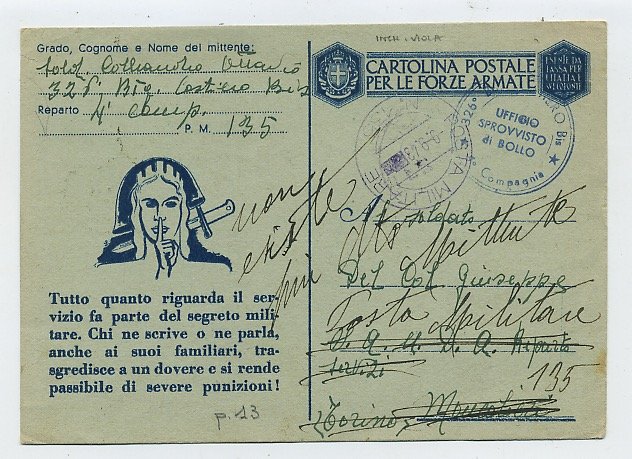 INCH. VIOLA
Grado, Cognome e Nome del mittente:
Sold.
326° Btg. Costiero Bis
Reparto 4ª Comp.
P. M. 135
CARTOLINA POSTALE
PER LE FORZE ARMATE
ESENTE DA
TASSA PER
L'ITALIA
POSTA MILITARE
326°
Bis
UFFICIO
SPROVVISTO
di BOLLO
Compagnia
non
esiste
Al soldato
Al Mittente
Del Col Giuseppe
Posta Militare
Reparto
servizi
135
Torino
Tutto quanto riguarda il ser-
vizio fa parte del segreto mili-
tare. Chi ne scrive o ne parla,
anche ai suoi familiari, tra-
sgredisce a un dovere e si rende
passibile di severe punizioni!
p. 13